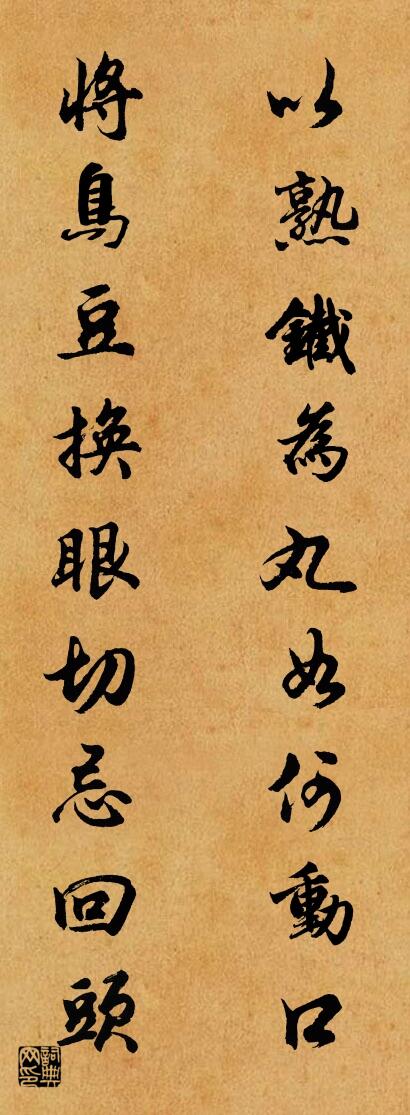 以熟鐵為丸如何動口
將烏豆換眼切忌回頭
詞典
网印